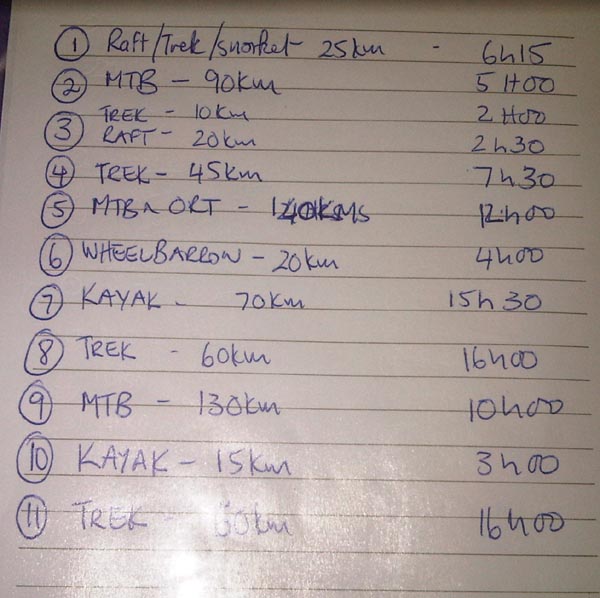 1 Raft/Trek/snorkel - 25km - 6h15
2 MTB - 90km 5H00
TREK - 10km 2H00
3 RAFT - 20km 2h30
4 TREK - 45km 7h30
5 MTB n ORT - 140KMS 12h00
6 WHEELBARROW - 20km 4h00
7 KAYAK - 70km 15h30
8 TREK - 60km 16h00
9 MTB - 130km 10h00
10 KAYAK - 15km 3h00
11 TREK - 16h00